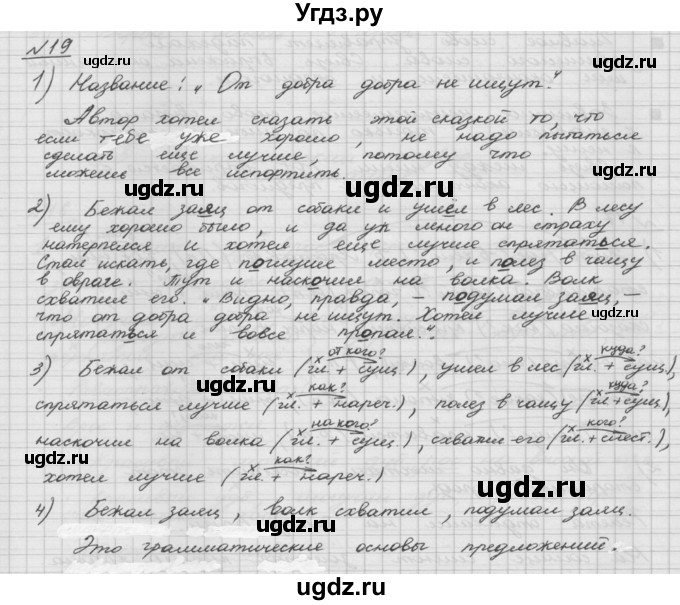 Угдз.ру
№19
1) Название: „От добра добра не ищут."
Автор хотел сказать этой сказкой то, что
если тебе уже хорошо, не надо пытаться
сделать еще лучше, потому что
можешь все испортить.
2) Бежал заяц от собаки и ушёл в лес. В лесу
ему хорошо было, и да уж много он страху
натерпелся и хотел еще лучше спрятаться.
Стал искать, где получше место, и полез в чащу
в овраге. Тут и наскочил на волка. Волк
схватил его. „Видно, правда, – подумал заяц, –
что от добра добра не ищут. Хотел лучше
спрятаться и вовсе пропал.".
3) Бежал от собаки (гл. + сущ), ушел в лес (гл. + сущ),
от кого? куда?
спрятаться лучше (гл. + нареч.), полез в чащу (гл.+сущ),
как? куда?
наскочил на волка (гл. + сущ.), схватил его (гл.+мест.),
на кого? кого?
хотел лучше (гл. + нареч.)
как?
4) Бежал заяц, волк схватил, подумал заяц.
Это грамматические основы предложений.
ugdz.ru
ugdz.ru
ugdz.ru
ugdz.ru
ugdz.ru
ugdz.ru
ugdz.ru
ugdz.ru
ugdz.ru
ugdz.ru
ugdz.ru
ugdz.ru